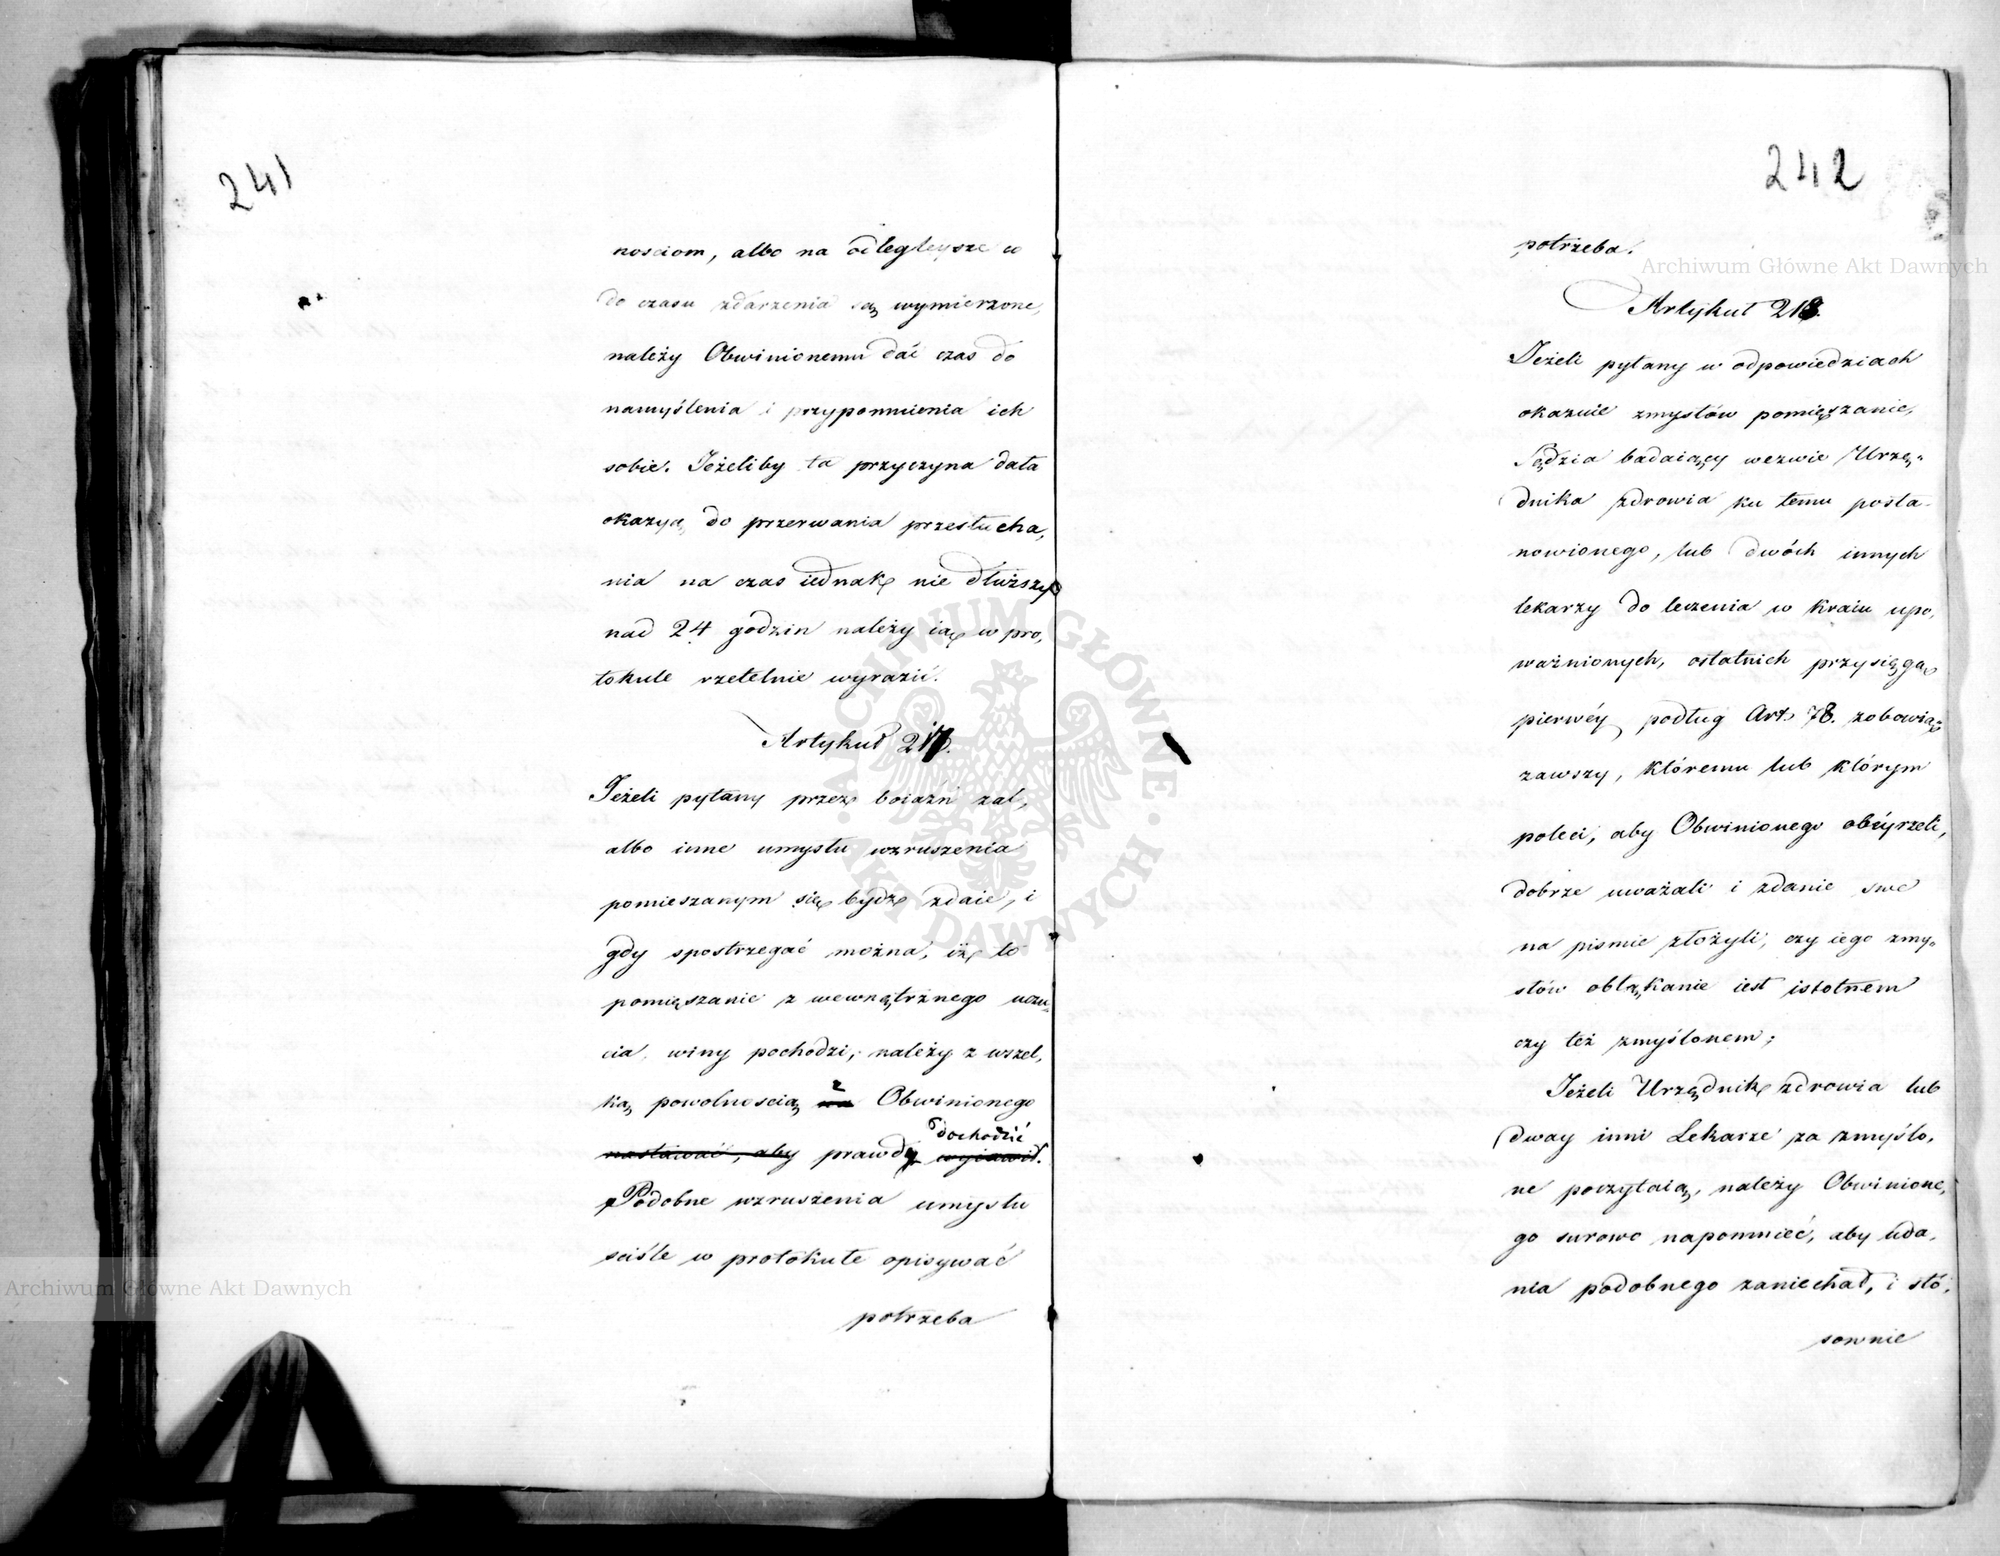 241
nosciom, albo na odlegleysze w
do czasu zdarzenia są wymierzone,
należy Obwinionemu dać czas do
namyślenia i przypomnienia ich
sobie. Jeżeliby ta przyczyna dała
okazyą do przerwania przesłucha,
nia na czas iednak nie dłuższy
nad 24 godzin należy ią w pro,
tokule rzetelnie wyrazić.
Artykuł 217.
Jeżeli pytany przez boiaźń żal,
albo inne umysłu wzruszenia
pomieszanym się bydź zdaie, i
gdy spostrzegać można, iż to
pomięszanie z wewnątrznego uczu-
cia winy pochodzi, należy z wszel,
ką powolnoscią z Obwinionego
nastawać, aby prawdy dochodzić wyiawił.
Podobne wzruszenia umysłu
sciśle w protokule opisywać
potrzeba
242
potrzeba.
Artykuł 218.
Jeżeli pytany w odpowiedziach
okazuie zmysłów pomięszanie,
Sędzia badaiący wezwie Urzę-
dnika zdrowia ku temu posta-
nowionego, lub dwóch innych
lekarzy do leczenia w kraiu upo,
ważnionych, ostatnich przysięgą
pierwéy podług Art. 78. zobowią-
zawszy, któremu lub którym
poleci, aby Obwinionego obéyrzeli,
dobrze uważali i zdanie swe
na pismie złożyli, czy iego zmy-
słów obłąkanie iest istotnem
czy też zmyślonem;
Jeżeli Urzędnik zdrowia lub
dway inni Lekarze za zmyślo,
ne poczytaią, należy Obwinione,
go surowo napomnieć, aby uda,
nia podobnego zaniechał, i stó,
sownie
Archiwum Główne Akt Dawnych
Archiwum Główne Akt Dawnych
ARCHIWUM GŁÓWNE AKT DAWNYCH